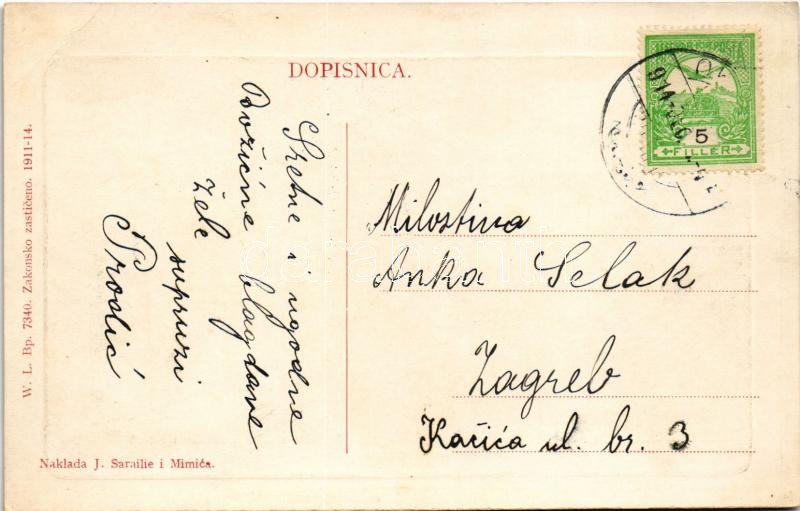 DOPISNICA.
5
FILLER
Sretne i ugodne
Božićne blagdane
žele
supruzi
Prodić
Milostiva
Anka Selak
Zagreb
Kačića ul. br. 3
W. L. Bp. 7340. Zakonsko zastičeno. 1911-14.
Naklada J. Sarailie i Mimića.